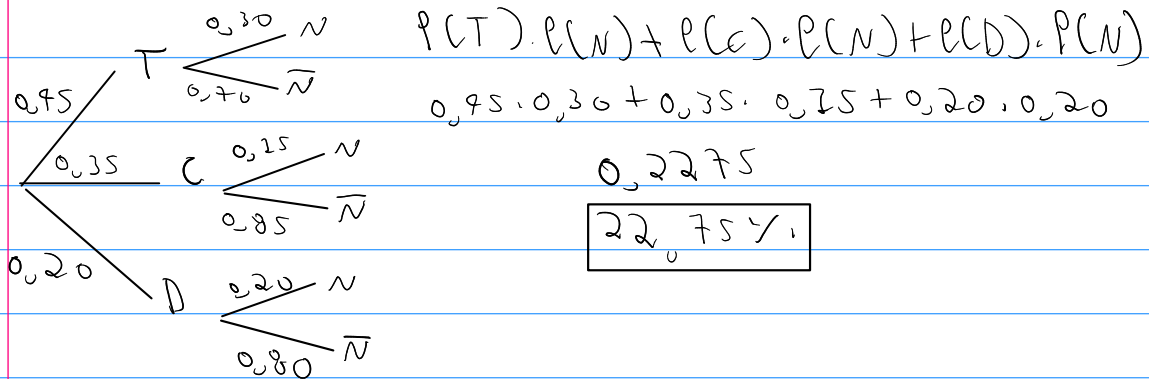 0,30 N
T
0,70 N̅
0,45
0,35 C
0,15 N
0,85 N̅
0,20 D
0,20 N
0,80 N̅
P(T).P(N)+P(C).P(N)+P(D).P(N)
0,45.0,30+0,35.0,15+0,20.0,20
0,2275
22,75%.